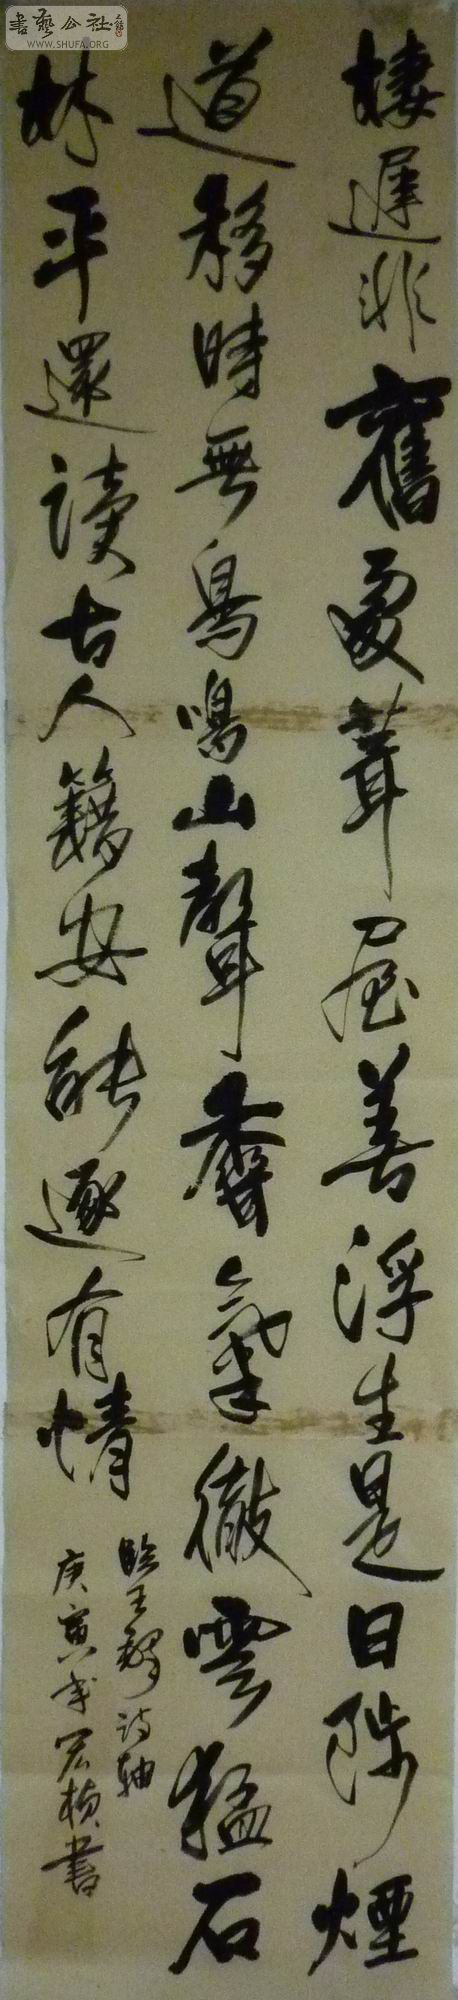 棲遲非舊處葺屋善浮生是日隣煙
道移時無鳥鳴山聲齊氣徹雲猛石
林平還讀古人籍安能逐有情
臨王鐸诗轴
庚寅年宏楨書
書藝公社
WWW.SHUFA.ORG